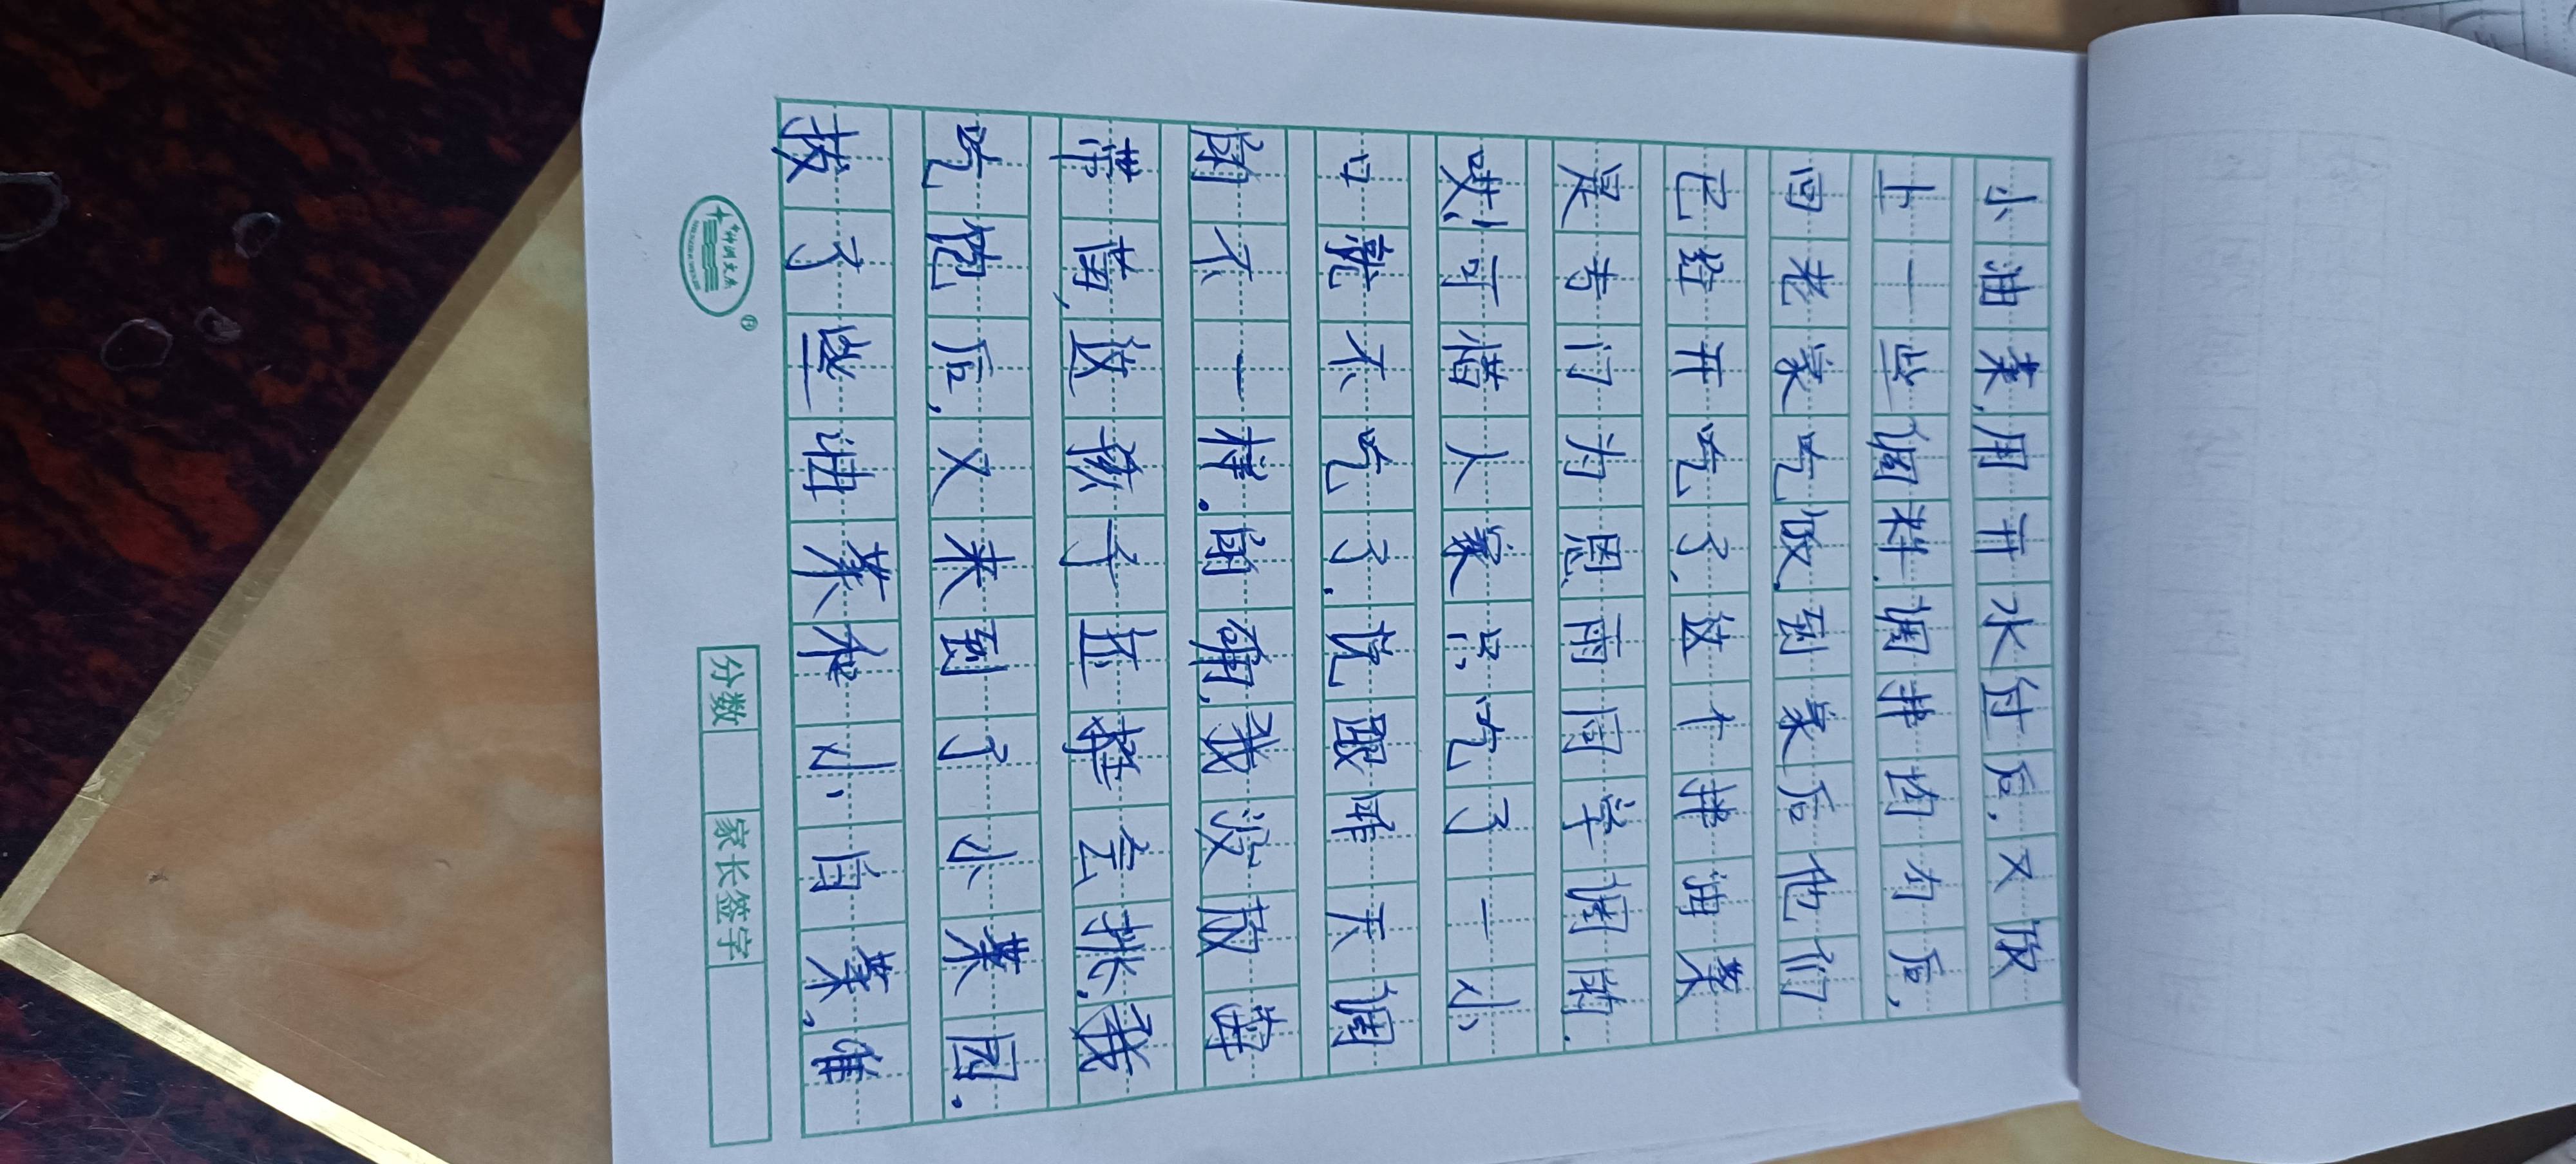 小油菜,用开水过后.又放
上一些调料.调拌均匀后,
回老家吃饭.到家后他们
已经开吃了.这个拌油菜
是专门为恩雨同学调的.
哎!可惜人家只吃了一小
口就不吃了.说跟昨天调
的不一样.的确,我没放
带,这孩子还挺会挑.我
吃饱后,又来到了小菜园.
拔了些油菜和小白菜.准
分数 家长签字